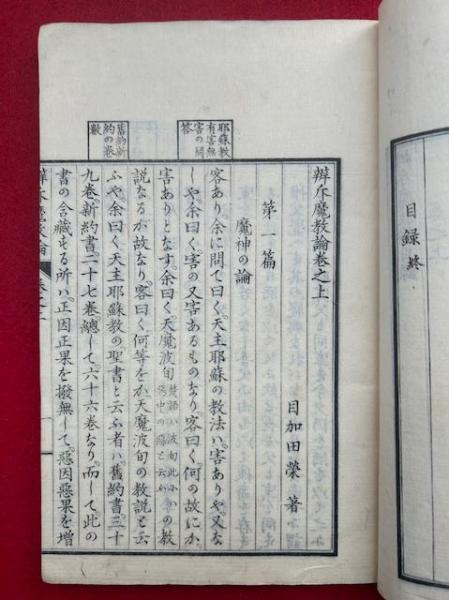 目録終
辯斥魔教論卷之上
目加田榮著
第一篇
魔神の論
耶蘇教
有害無
害の問
答
客あり、余に問て曰く、天主耶蘇の教法ハ害ありや、又な
しや、余曰く、害の又害あるものなり、客曰く、何の故にか、
害ありとなす、余曰く、天魔波旬の教
説なるが故なり、客曰く、何等をか、天魔波旬の教説と云
ふや、余曰く、天主耶蘇教の聖書と云ふ者ハ舊約書三十
九卷、新約書二十七卷、總して六十六卷なり、而して、此の
書の含藏もる所ハ、正因正果を撥無して、惡因惡果を増
舊約新
約の卷
數